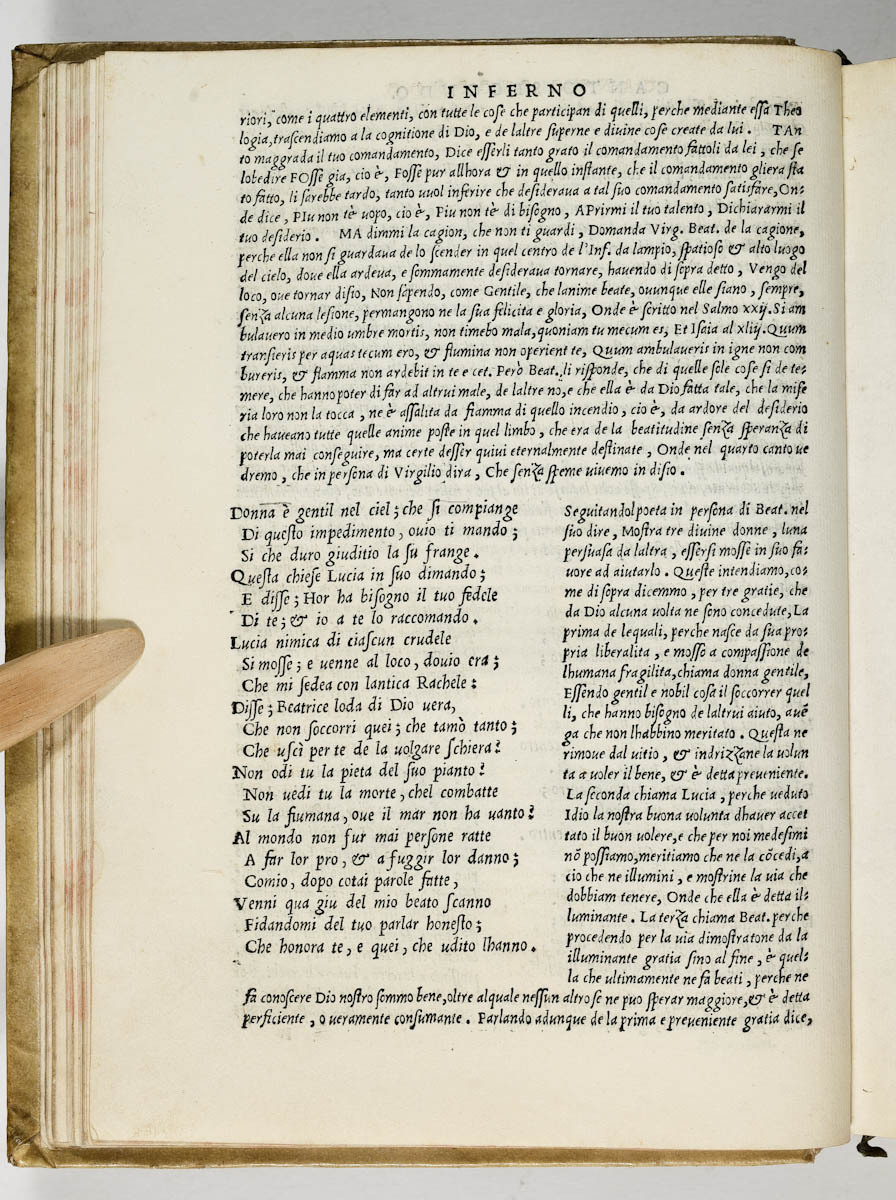 INFERNO
riori, come i quattro elementi, con tutte le cose che participan di quelli, perche mediante essa Theo
logia, trascendiamo a la cognitione di Dio, e de laltre superne e diuine cose create da lui . TAn
to maggrada il tuo comandamento, Dice esserli tanto grato il comandamento fattoli da lei, che se
lobedire FOsse gia, cio è, Fosse pur allhora & in quello instante, che il comandamento gliera sta
to fatto, li sarebbe tardo, tanto uuol inferire che desideraua a tal suo comandamento satisfare, On=
de dice, PIu non tè uopo, cio è, Piu non tè di bisogno, APrirmi il tuo talento, Dichiararmi il
tuo desiderio . MA dimmi la cagion, che non ti guardi, Domanda Virg. Beat. de la cagione,
perche ella non si guardaua de lo scender in quel centro de l'Inf. da lampio, spatioso & alto luogo
del cielo, doue ella ardeua, e sommamente desideraua tornare, hauendo di sopra detto, Vengo del
loco, oue tornar disio, Non sapendo, come Gentile, che lanime beate, ouunque elle siano, sempre,
senza alcuna lesione, permangono ne la sua felicita e gloria, Onde è scritto nel Salmo xxij. Si am
bulauero in medio umbre mortis, non timebo mala, quoniam tu mecum es, Et Isaia al xliij. Quum
transieris per aquas tecum ero, & flumina non operient te, Quum ambulaueris in igne non com
bureris, & flamma non ardebit in te e cet. Però Beat. li risponde, che di quelle sole cose si de te=
mere, che hanno poter di far ad altrui male, de laltre no, e che ella è da Dio fatta tale, che la mise
ria loro non la tocca, ne è assalita da fiamma di quello incendio, cio è, da ardore del desiderio
che haueano tutte quelle anime poste in quel limbo, che era de la beatitudine senza speranza di
poterla mai conseguire, ma certe desser quiui eternalmente destinate, Onde nel quarto canto ue
dremo, che in persona di Virgilio dira, Che senza speme uiuemo in disio .
Donna è gentil nel ciel; che si compiange
Di questo impedimento, ouio ti mando;
Si che duro giuditio la su frange.
Questa chiese Lucia in suo dimando;
E disse; Hor ha bisogno il tuo fedele
Di te; & io a te lo raccomando.
Lucia nimica di ciascun crudele
Si mosse; e uenne al loco, douio era;
Che mi sedea con lantica Rachele:
Disse; Beatrice loda di Dio uera,
Che non soccorri quei; che tamò tanto;
Che uscì per te de la uolgare schiera?
Non odi tu la pieta del suo pianto?
Non uedi tu la morte, chel combatte
Su la fiumana, oue il mar non ha uanto?
Al mondo non fur mai persone ratte
A far lor pro, & a fuggir lor danno;
Comio, dopo cotai parole fatte,
Venni qua giu del mio beato scanno
Fidandomi del tuo parlar honesto;
Che honora te, e quei, che udito lhanno.
Seguitandol poeta in persona di Beat. nel
suo dire, Mostra tre diuine donne, luna
persuasa da laltra, essersi mosse in suo fa=
uore ad aiutarlo . Queste intendiamo, co=
me di sopra dicemmo, per tre gratie, che
da Dio alcuna uolta ne sono concedute, La
prima de lequali, perche nasce da sua pro=
pria liberalita, e mossa a compassione de
lhumana fragilita, chiama donna gentile,
Essendo gentil e nobil cosa il soccorrer quel
li, che hanno bisogno de laltrui aiuto, auē
ga che non lhabbino meritato . Questa ne
rimoue dal uitio, & indrizzane la uolun
ta a uoler il bene, & è detta preueniente.
La seconda chiama Lucia, perche ueduto
Idio la nostra buona uolunta dhauer accet
tato il buon uolere, e che per noi medesimi
nō possiamo, meritiamo che ne la cōcedi, a
cio che ne illumini, e mostrine la uia che
dobbiam tenere, Onde che ella è detta il=
luminante . La terza chiama Beat. perche
procedendo per la uia dimostratone da la
illuminante gratia sino al fine, è quel=
la che ultimamente ne fa beati, perche ne
fa conoscere Dio nostro sommo bene, oltre alquale nessun altro se ne puo sperar maggiore, & è detta
perficiente, o ueramente consumante . Parlando adunque de la prima e preueniente gratia dice,